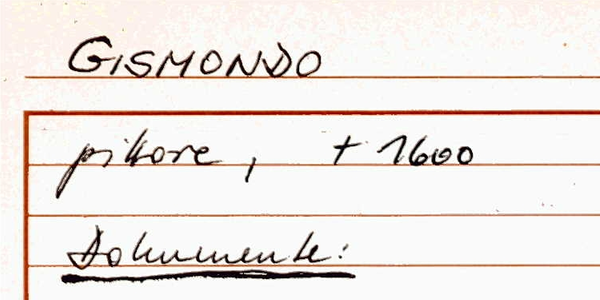 GISMONDO
pittore, † 1600
Dokumente: